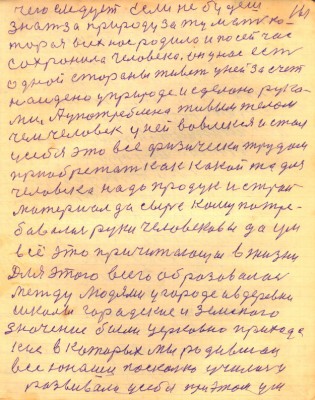 чего следует если не будеш
161
знат за природу за ту мат ко
торая всех нас родила и по сей час
сохронила человека, он у нас ест
с одной стораны живет у ней за счет
найдено у природе и сделано рука
ми А употреблина живым телом
чем человек у ней вовлекся и стал
у себя это всё физически трудом
приобретат как какой то для
человека надо продук и строй
материал да сыръе кому потре
бавалис руки человековы да ум
всё это причитающи в жизни
Для этого всего образовалас
между людями у городе и в деревни
школы гарадские и земского
значение были церковно прихода
кие в которых мы родившии
все юнаши поскольку училис и
развивали у себя при этом ум